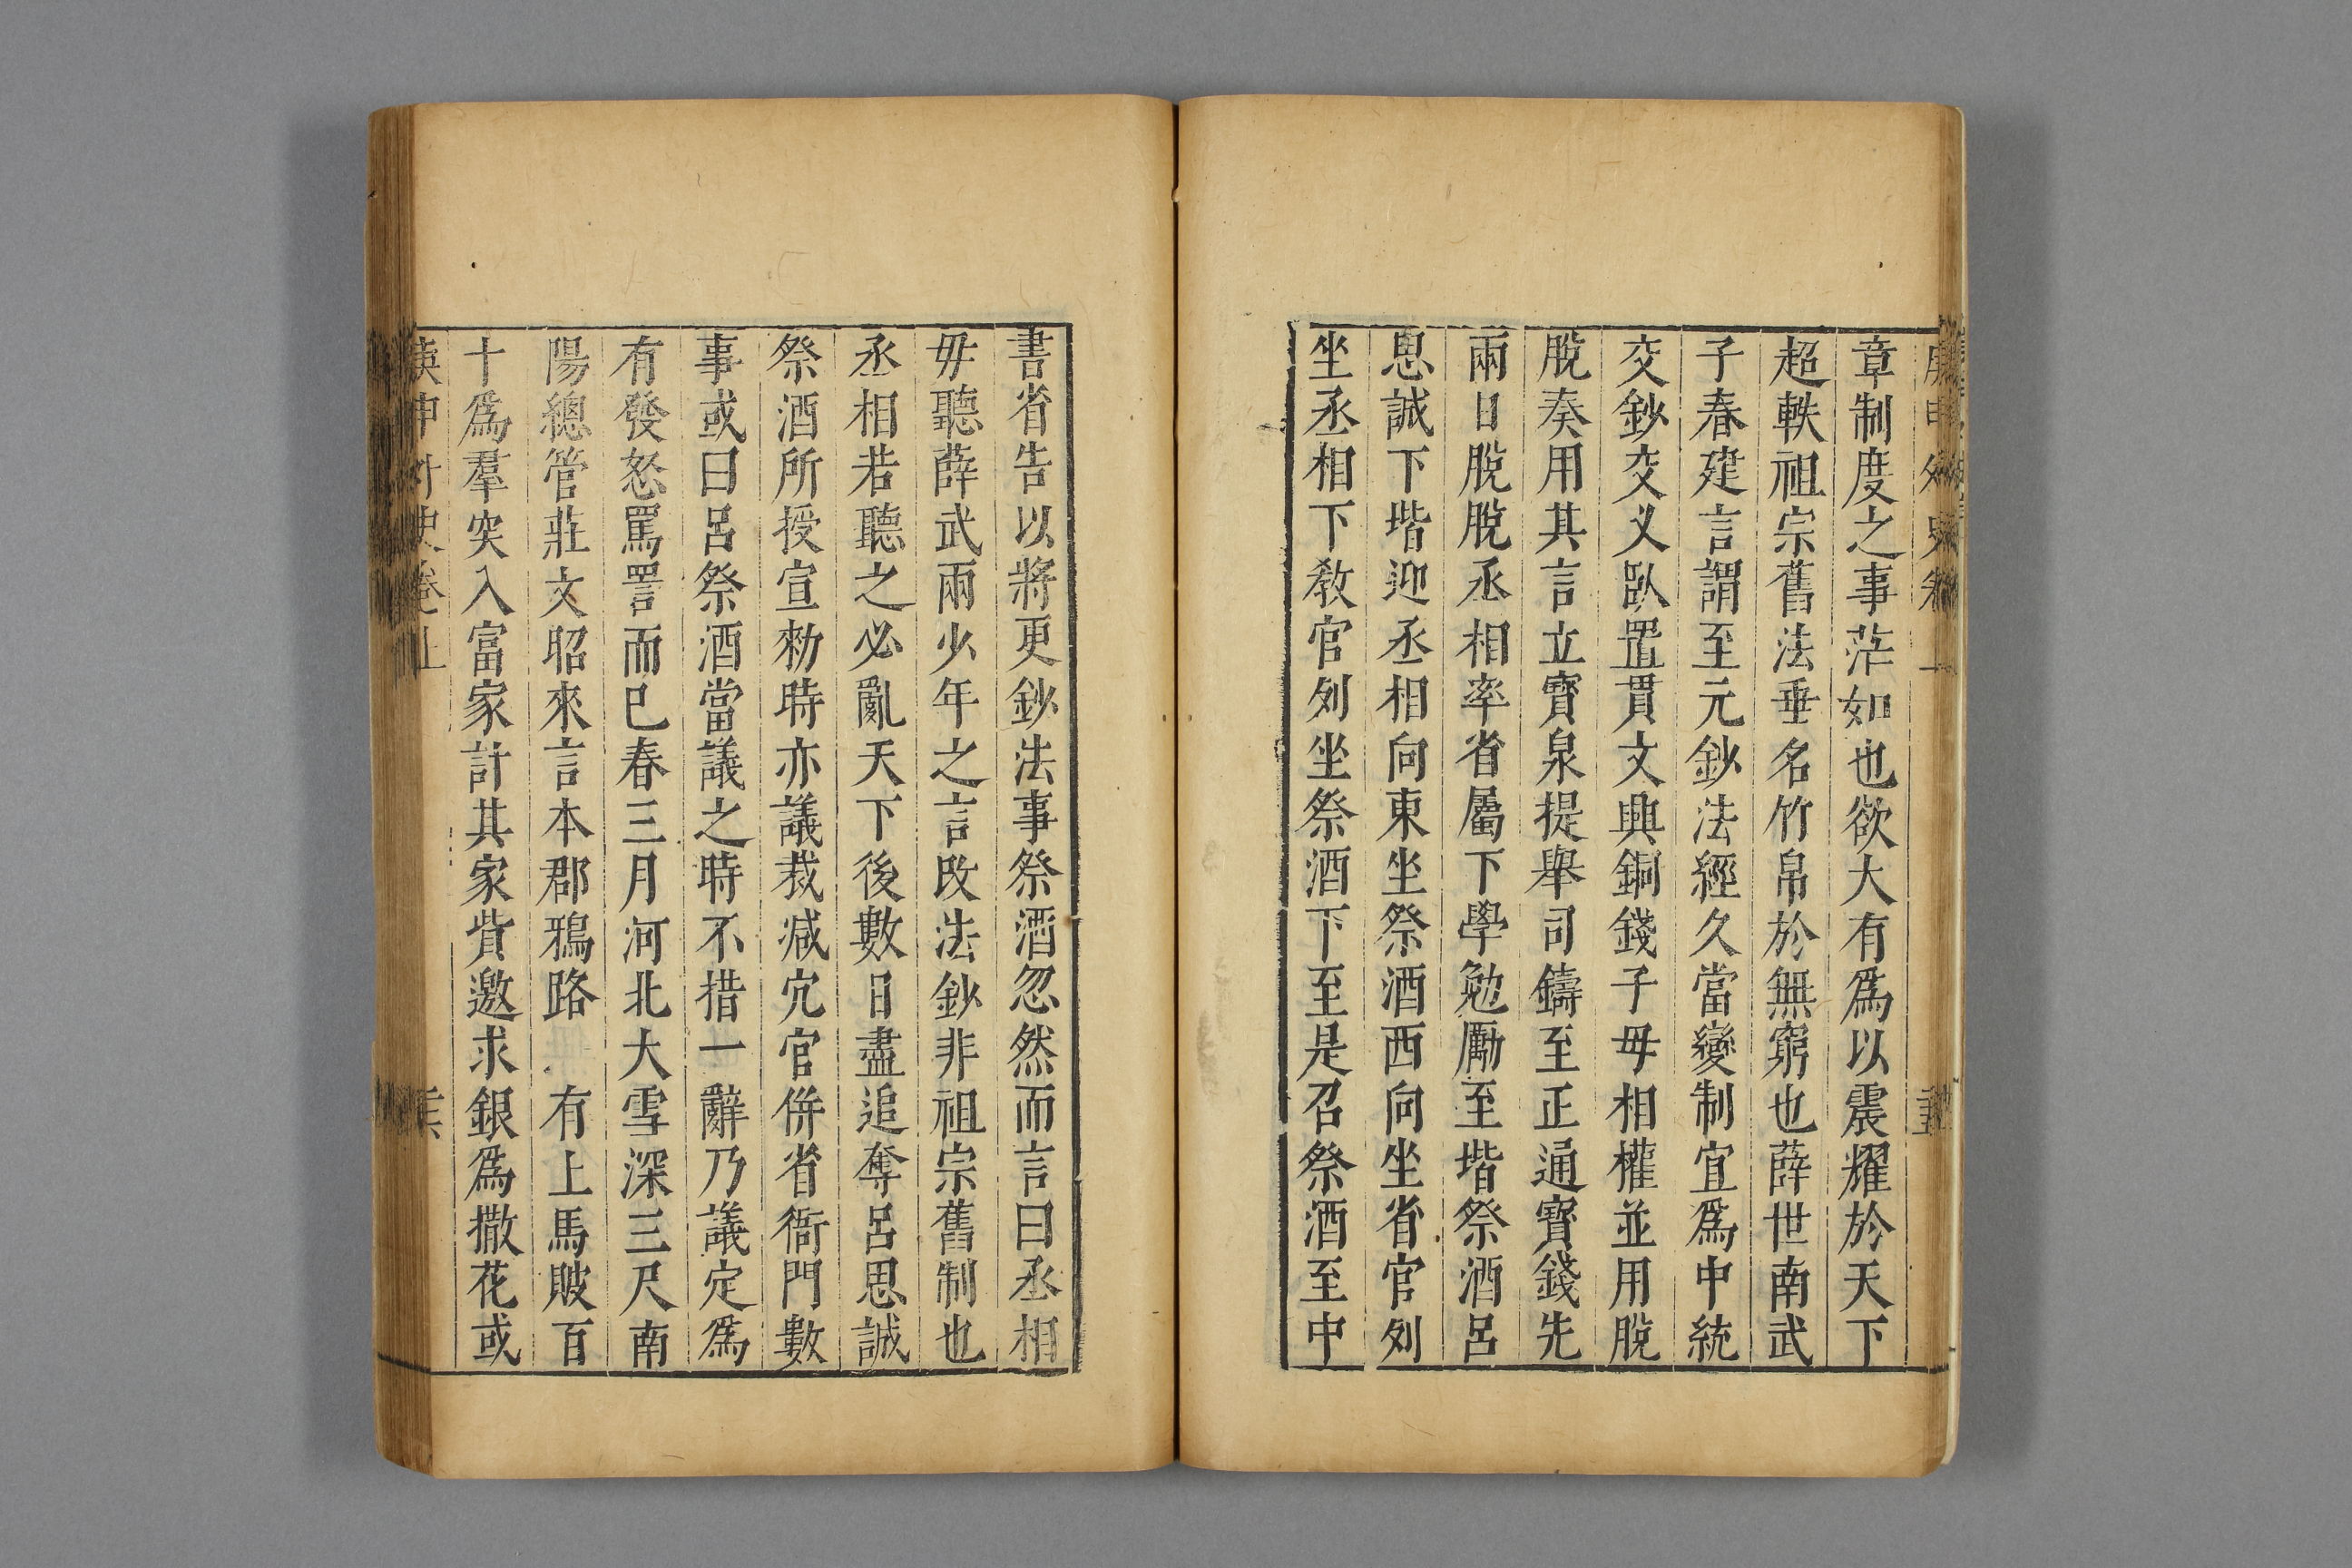 章制度之事茫如也欲大有爲以震耀於天下
超軼祖宗舊法垂名竹帛於無窮也薛世南武
子春建言謂至元鈔法經久當變制宜爲中統
交鈔交义臥置貫文與銅錢子毋相權並用脫
脫奏用其言立寳泉提舉司鑄至正通寳錢先
兩日脫脫丞相率省屬下學勉厲至堦祭酒呂
思誠下堦迎丞相向東坐祭酒西向坐省官列
坐丞相下教官列坐祭酒下至是召祭酒至中
書省告以將更鈔法事祭酒忽然而言曰丞相
毋聽薛武兩少年之言改法鈔非祖宗舊制也
丞相若聽之必亂天下後數日盡追奪呂思誠
祭酒所授宣勑時亦議裁减宂官併省衙門數
事或曰呂祭酒當議之時不措一辭乃議定爲
有發怒罵詈而已春三月河北大雪深三尺南
陽總管莊文昭來言本郡鴉路　有上馬賊百
十爲羣突入富家計其家貲邀求銀爲撒花或
庚申外史卷上